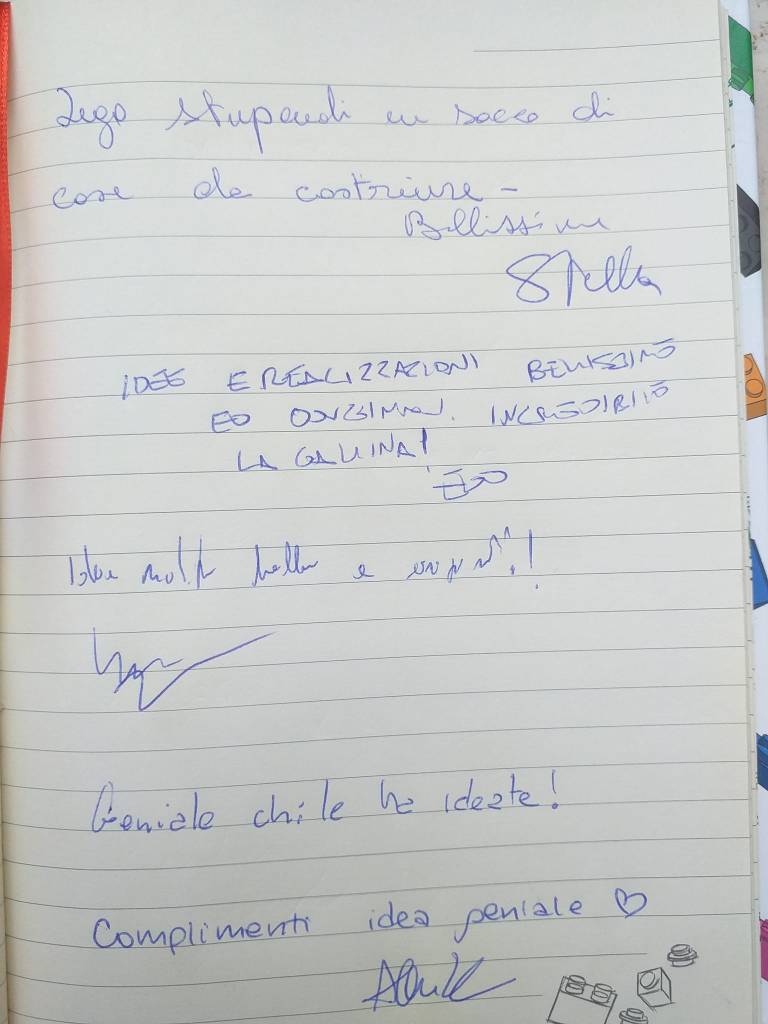 Lego stupendi un sacco di
cose da costriure -
Bellissimi
Stella
IDEE E REALIZZAZIONI BELLISSIME
ED INCREDIBILE
LA GALLINA!
molto belle e
Geniale chi le ha ideate!
Complimenti idea geniale ♡